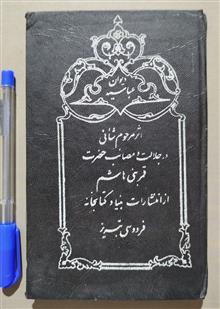 دیوان
عباسیه
اثر مرحوم شائی
در جلالت و مصائب حضرت
قمر بنی هاشم
از انتشارات بنیاد کتابخانه
فردوسی تبریز